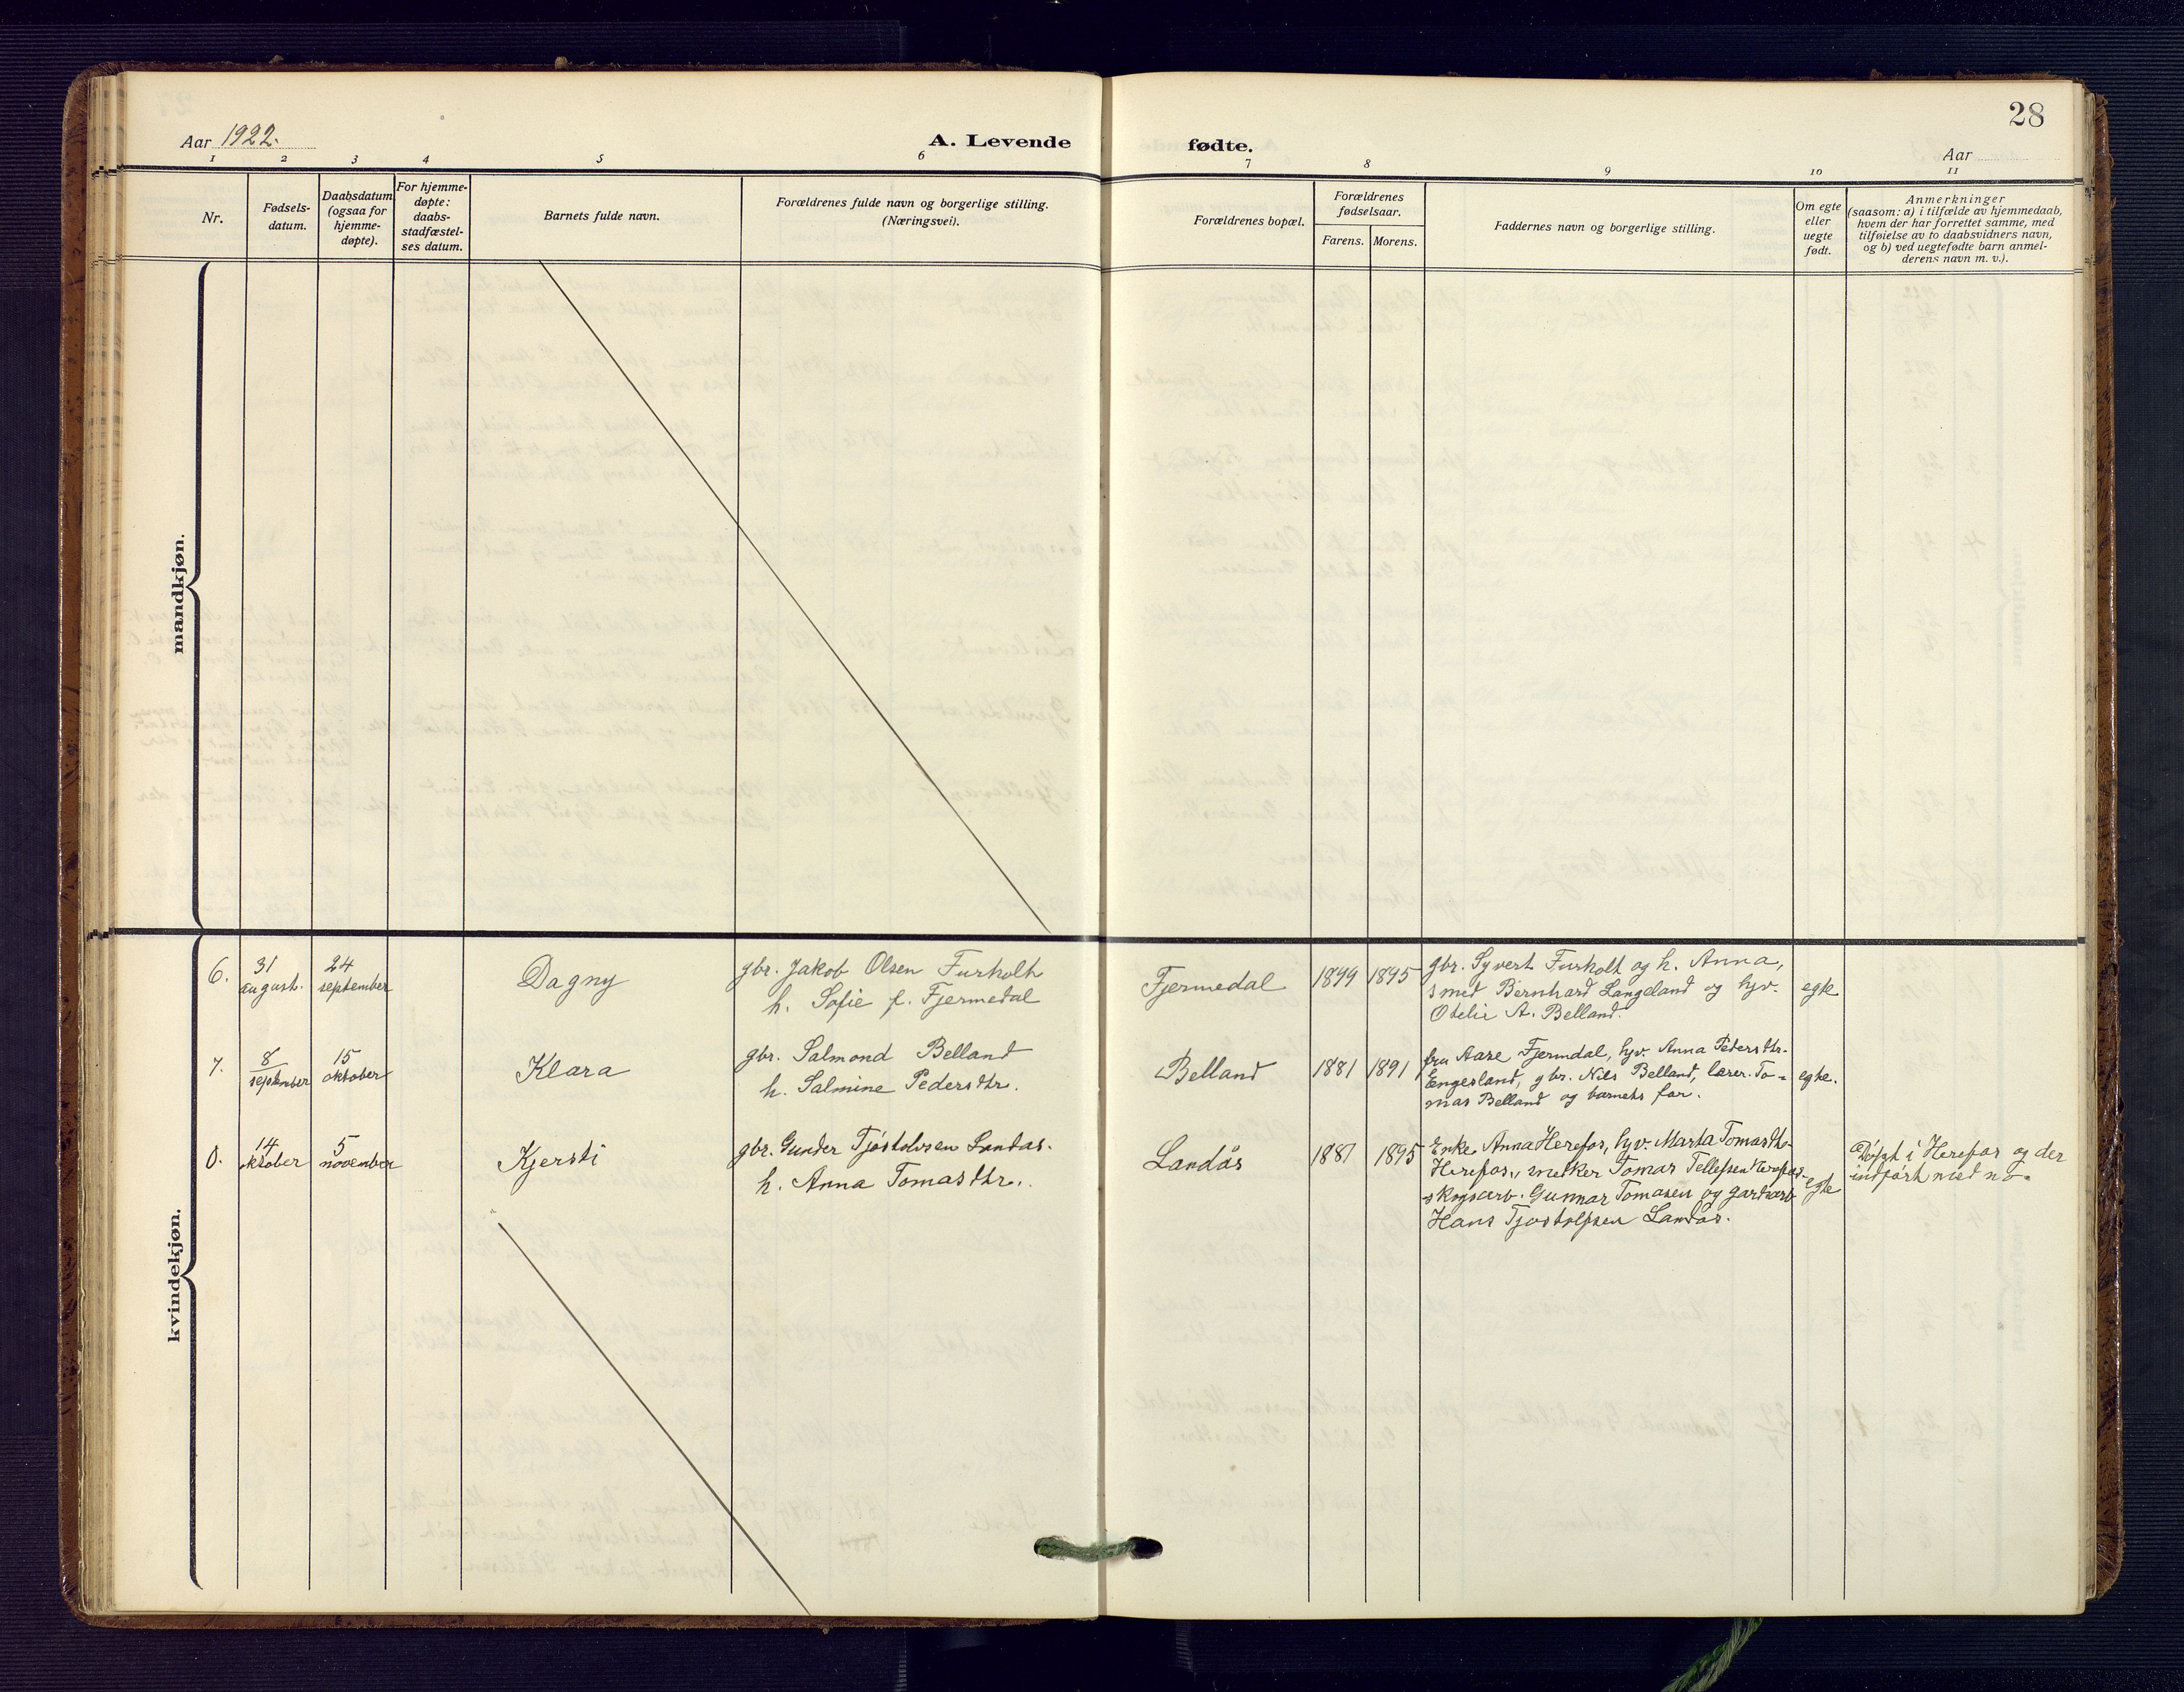 28
Aar 1922.
A. Levende fødte.
Aar
1 2 3 4 5 6 7 8 9 10 11
Nr.
Fødsels-
datum.
Daabsdatum
(ogsaa for
hjemme-
døpte).
For hjemme-
døpte:
daabs-
stadfæstel-
ses datum.
Barnets fulde navn.
Forældrenes fulde navn og borgerlige stilling.
(Næringsvei).
Forældrenes bopæl.
Forældrenes
fødselsaar.
Farens. Morens.
Faddernes navn og borgerlige stilling.
Om egte
eller
uegte
født.
Anmerkninger
(saasom: a) i tilfælde av hjemmedaab,
hvem der har forrettet samme, med
tilføielse av to daabsvidners navn,
og b) ved uegtefødte barn anmel-
derens navn m. v.).
mandkjøn.
kvindekjøn.
6.
31
august.
24
september
Dagny
gbr. Jakob Olsen Furholt
h. Sofie f. Fjermedal
Fjermedal
1899 1895
gbr. Syvert Furholt og h. Anna,
smed Bernhard Langeland og hjv.
Otelie A. Belland.
egte
7.
8
september
15
oktober
Klara
gbr. Salmond Belland
h. Salmine Pedersdtr.
Belland
1881 1891
fru Aase Fjermdal, hjv. Anna Pedersdtr.
Engesland, gbr. Nils Belland, lærer To-
mas Belland og barnets far.
egte.
14
oktober
5
november
Kjersti
gbr. Gunder Tjøstolvsen Landas.
h. Anna Tomasdtr.
Landås
1887 1895
Enke Anna Herefos, hjv. Marta Tomasdtr.
Herefos, Tomas Tellefsen Herefos,
skogsarb. Gunnar Tomasen og gardsarb
Hans Tjostolfsen Landås.
egte
Døpt i Herefos og der
indført med no.